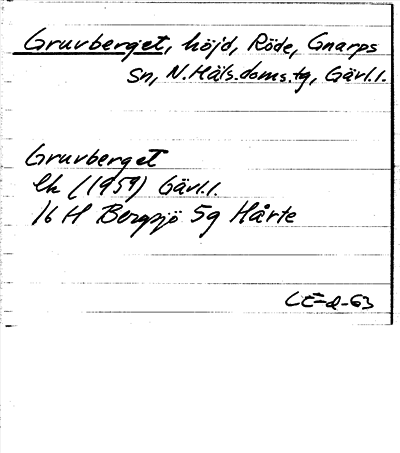 Gruvberget, höjd, Röde, Gnarps
Sn, N.Häls.doms.tg, Gävl.l.
Gruvberget
Ek (1959) Gävl.l.
16 H Bergsjö 5g Hårte